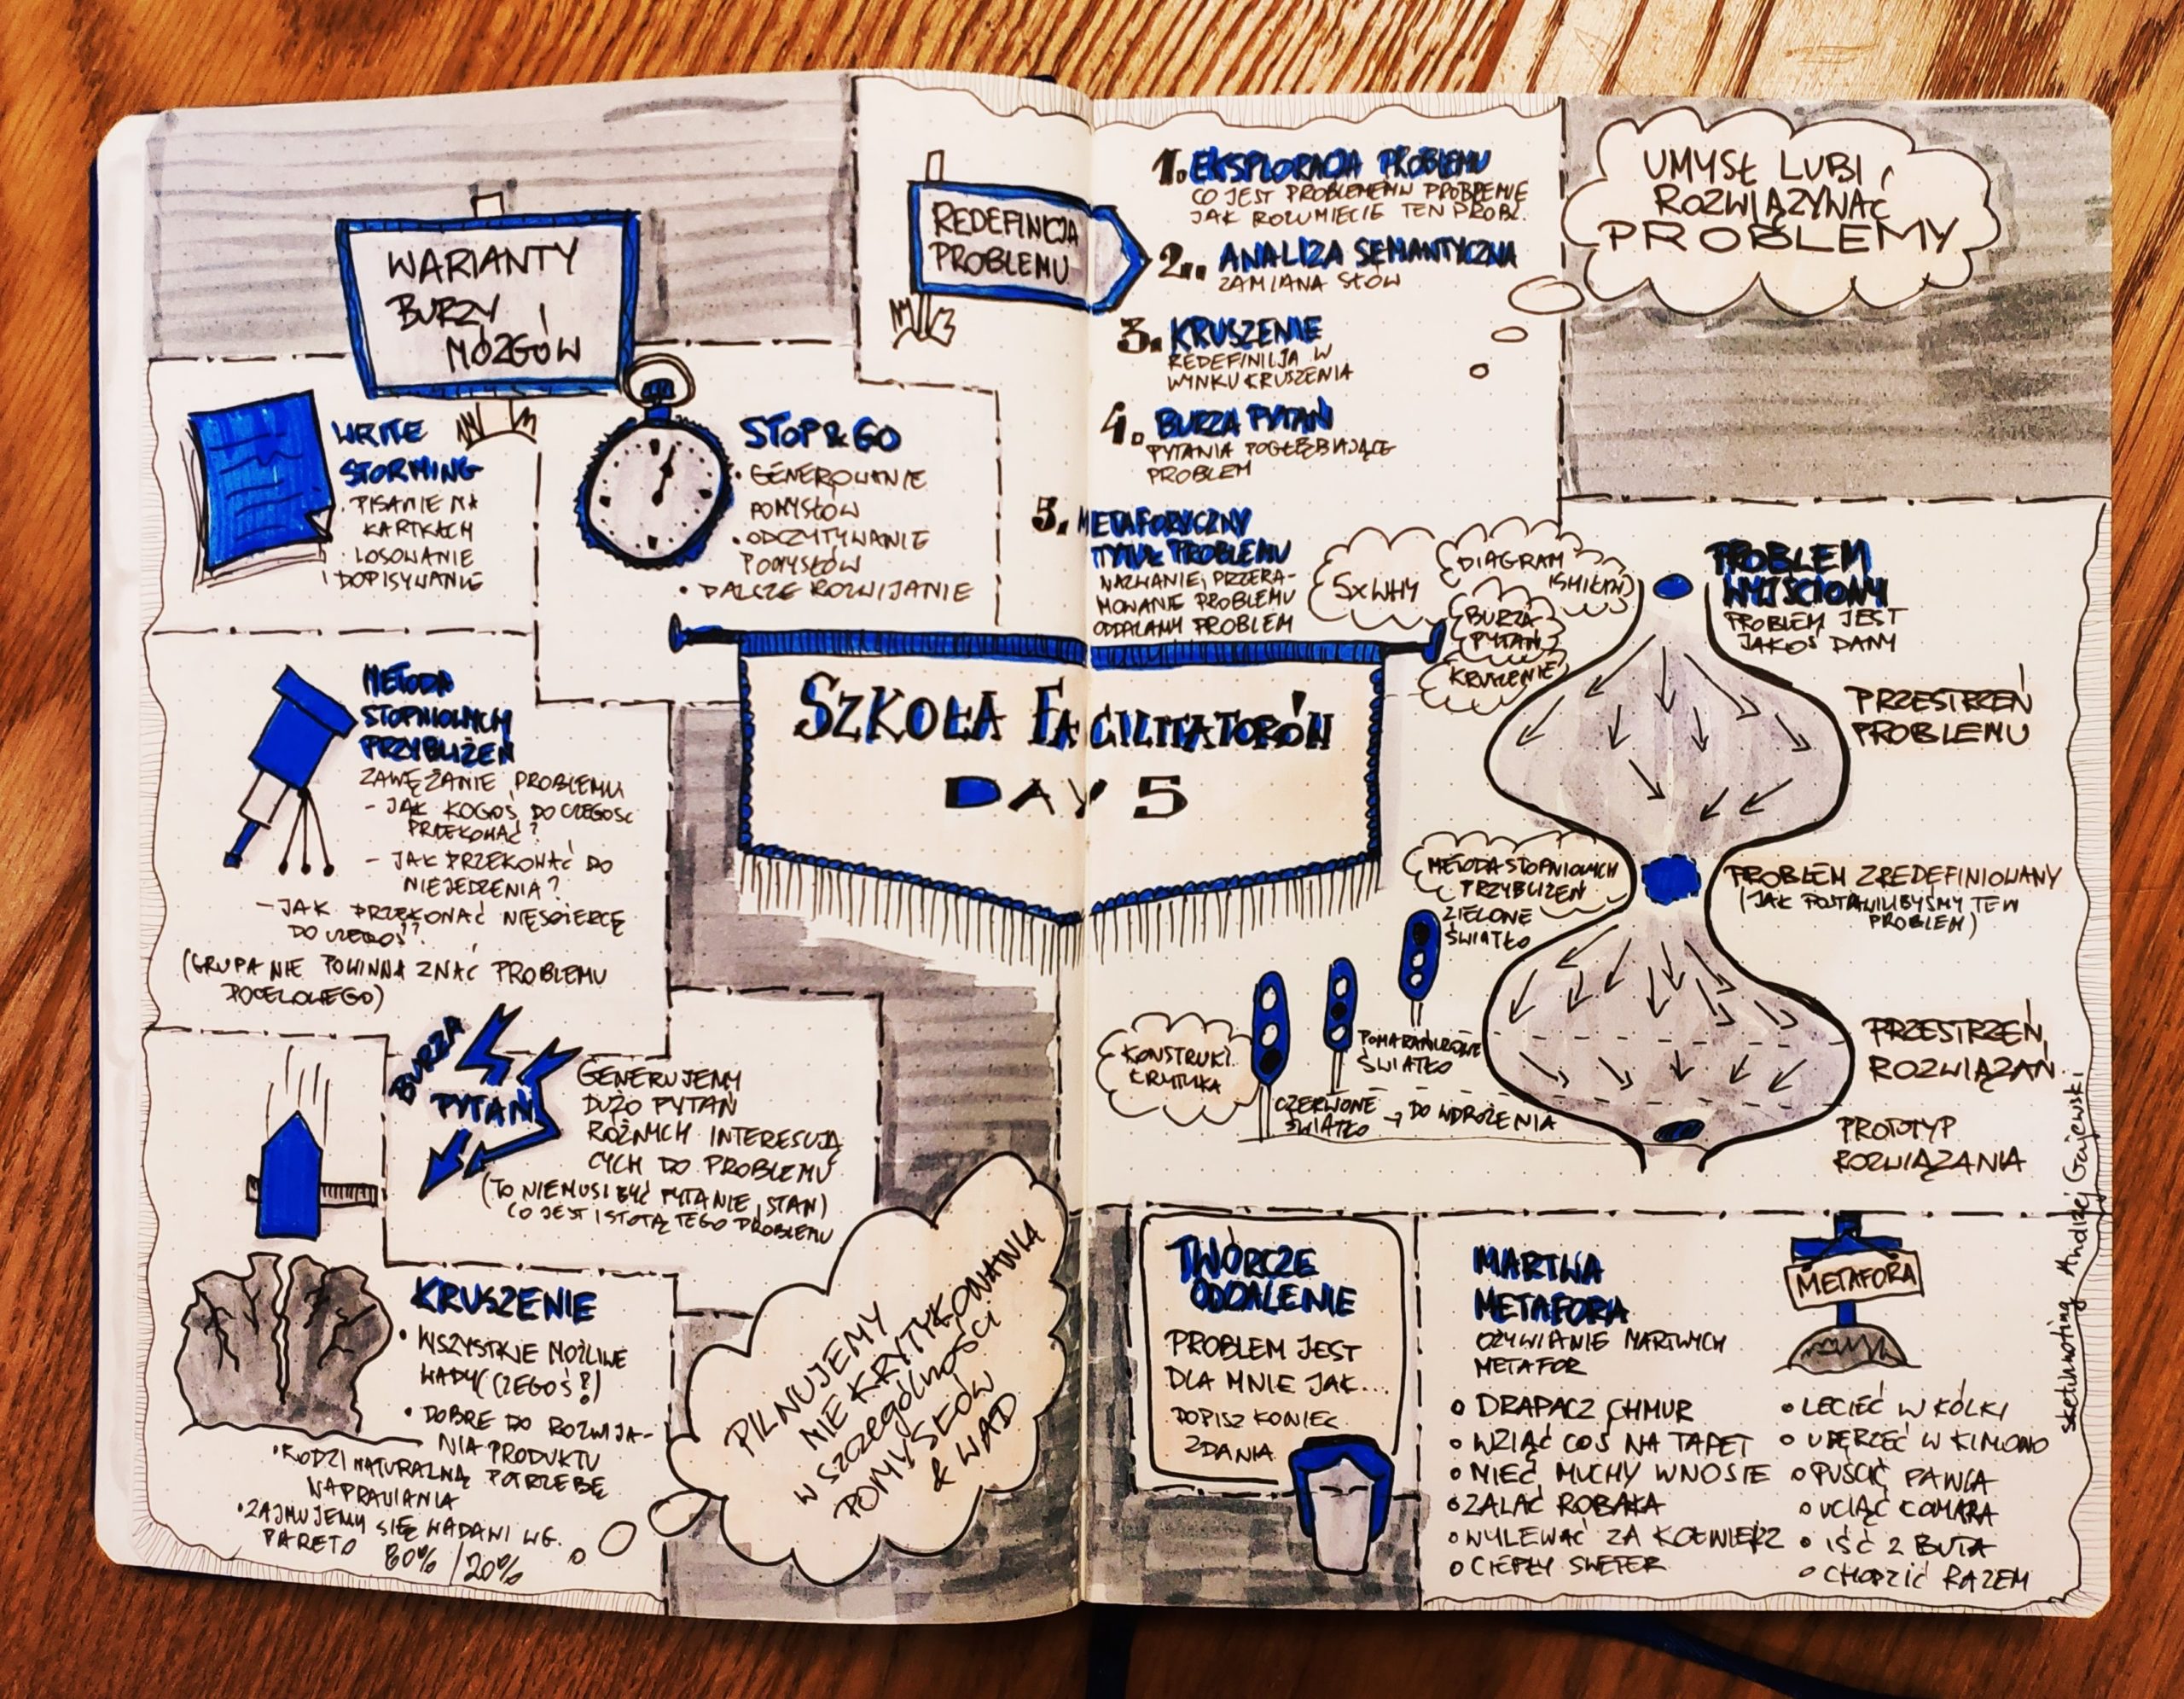 WARIANTY
BURZY
MÓZGÓW
WRITE
STORMING
· PISANIE NA
KARTKACH
· LOSOWANIE
I DOPISYWANIE
STOP & GO
• GENEROWANIE
POMYSŁÓW
• ODCZYTYWANIE
POMYSŁÓW
• DALSZE ROZWIJANIE
METODA
STOPNIOWYCH
PRZYBLIŻEŃ
ZAWĘŻANIE PROBLEMU
- JAK KOGOŚ DO CZEGOŚ
PRZEKONAĆ?
- JAK PRZEKONAĆ DO
NIEJEDZENIA?
- JAK PRZEKONAĆ
DO CZEGOŚ?
(GRUPA NIE POWINNA ZNAĆ PROBLEMU
DOCELOWEGO)
BURZA
PYTAŃ
GENERUJEMY
DUŻO PYTAŃ
RÓŻNYCH INTERESUJĄ
CYCH DO PROBLEMU
(TO NIEMUSI BYĆ PYTANIE, STAN)
CO JEST ISTOTĄ TEGO PROBLEMU
KRUSZENIE
• WSZYSTKIE MOŻLIWE
WADY (CZEGOŚ?)
• DOBRE DO ROZWIJA-
NIA PRODUKTU
• RODZI NATURALNĄ POTRZEBĘ
NAPRAWIANIA
• ZAJMUJEMY SIĘ WADAMI WG.
PARETO 80% / 20%
PILNUJEMY
NIE KRYTYKOWANIA
W SZCZEGÓLNOŚCI
POMYSŁÓW
& WAD
SZKOŁA FACILITATORÓW
DAY 5
REDEFINICJA
PROBLEMU
1. EKSPLORACJA PROBLEMU
CO JEST PROBLEMEM W PROBLEMIE
JAK ROZUMIECIE TEN PROBL.
2. ANALIZA SEMANTYCZNA
ZAMIANA SŁÓW
3. KRUSZENIE
REDEFINICJA W
WYNKU KRUSZENIA
4. BURZA PYTAŃ
PYTANIA POGŁĘBIAJĄCE
PROBLEM
5. METAFORYCZNY
TYTUŁ PROBLEMU
NAZWANIE, PRZERA-
MOWANIE PROBLEMU
ODDALAMY PROBLEM
UMYSŁ LUBI
ROZWIĄZYWAĆ
PROBLEMY
5xWHY
DIAGRAM
BURZA
PYTAŃ
KRUSZENIE
PROBLEM
WYJŚCIOWY
PROBLEM JEST
JAKOŚ DANY
PRZESTRZEŃ
PROBLEMU
METODA STOPNIOWYCH
PRZYBLIŻEŃ
PROBLEM ZREDEFINIOWANY
(JAK POSTAWILIBYŚMY TEN
PROBLEM)
ZIELONE
ŚWIATŁO
POMARAŃCZOWE
ŚWIATŁO
KONSTRUKT.
KRYTYKA
CZERWONE
ŚWIATŁO → DO WDROŻENIA
PRZESTRZEŃ
ROZWIĄZAŃ
PROTOTYP
ROZWIĄZANIA
TWÓRCZE
ODDALENIE
PROBLEM JEST
DLA MNIE JAK...
DOPISZ KONIEC
ZDANIA
MARTWA
METAFORA
OŻYWIANIE MARTWYCH
METAFOR
METAFORA
• DRAPACZ CHMUR
• WZIĄĆ COŚ NA TAPET
• MIEĆ MUCHY W NOSIE
• ZALAĆ ROBAKA
• WYLEWAĆ ZA KOŁNIERZ
• CIEPŁY SWETER
• LECIEĆ W KÓLKI
• UDERZEĆ W KIMONO
• PUŚCIĆ PAWIA
• UCIĄĆ KOMARA
• IŚĆ Z BUTA
• CHODZIĆ RAZEM
sketchnoting Andrzej Gajewski